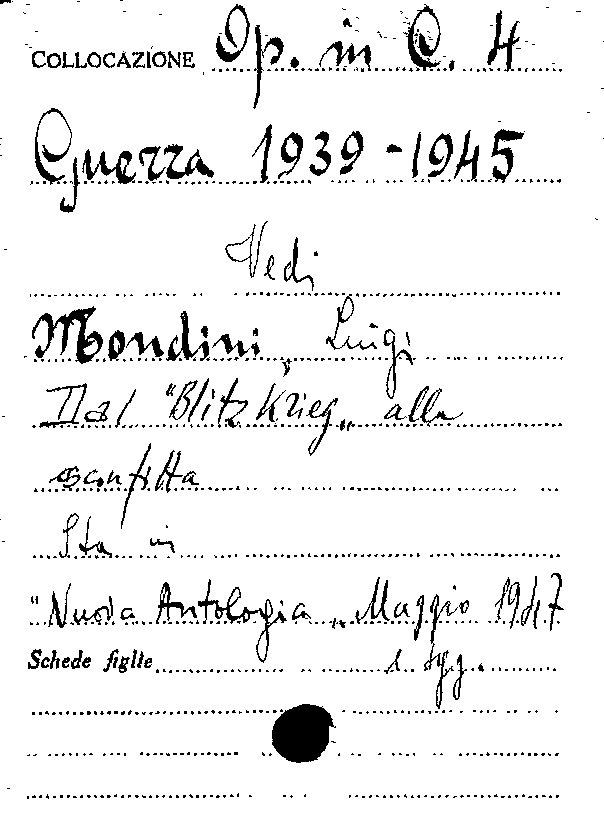 COLLOCAZIONE Op. in C. 4
Guerra 1939-1945
Vedi
Mondini, Luigi
Dal "Blitzkrieg" alla
sconfitta
Sta in
"Nuova Antologia" Maggio 1947
Schede figlie e sgg.